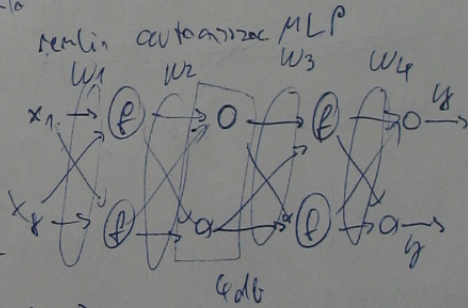 nemlin autoasszoc MLP
W1 W2 W3 W4
x1 f f y
x8 f f y
4 db